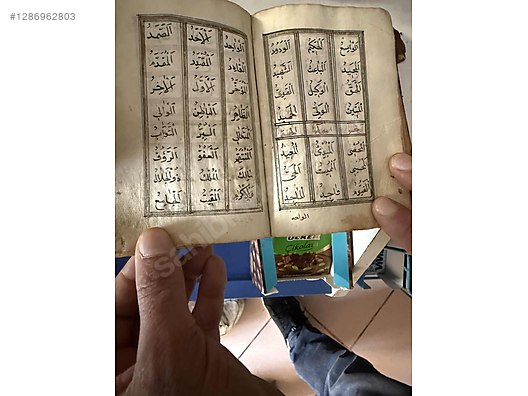 #1286962803
الواسع الحكيم الودود
المجيد الباعث الشهيد
الحق الوكيل القوي
المتين الولي الحميد
المحصي المبدئ المعيد
المحيي المميت الحي
القيوم الواجد الماجد
الواحد
الواحد الاحد الصمد
القادر المقتدر المقدم
المؤخر الاول الاخر
الظاهر الباطن الوالي
المتعالي البر التواب
المنتقم العفو الرؤف
مالك الملك ذوالجلال
والاكرام المقسط الجامع
ÜLKER
Çikolata
sahibinden